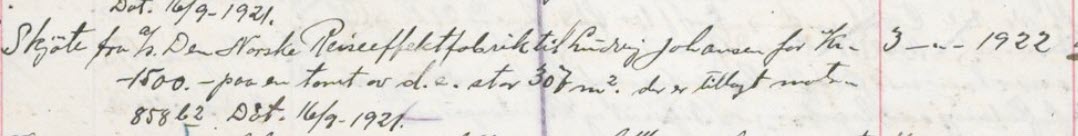 Dat. 16/9-1921.
Skjöte fra a/s. Den Norske Reiseeffektfabrik til Ludvig Johansen for Kr. 3 -"- 1922
-1500.- paa en tomt av d.e. stor 307 m². der er tillagt matr.
858 b2 Dat. 16/9-1921.